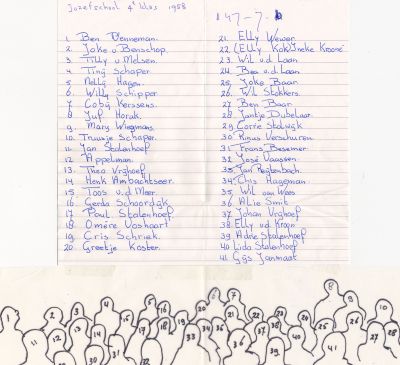 Jozefschool 4e klas 1958
1 Ben Venneman.
2 Joke v Benschop.
3 Tilly v. Melsen.
4 Tiny Schaper
5 Nelly Hagen.
6 Willy Schipper
7 Coby Kerssens.
8 Juf Horak.
9 Mary Wiegmans.
10 Truusje Schaper.
11 Jan Stalenhoef
12 Appelman.
13 Theo Vrghoef
14 Henk Ambachtseer.
15 Toos v.d Meer.
16 Gerda Schoordijk
17 Paul Stalenhoef.
18 Omère Voshaart
19 Cris Schriek
20 Greetje Koster.
47-7
21. Elly Wewer
22 (Elly Kok) Ineke Kroone
23 Wil v.d Laan
24 Bea v.d. Laan
25 Joke Baan
26 Wil Stokkers.
27 Ben Baar
28 Jantje Dubelaar
29 Corrie Stalwijk
30 Rinus Verschuren
31 Frans Besemer
32 José Vaassen
33 Jan Rejtenbach
34 Chis Hageman
35 Wil van Wees
36 Alie Smit
37 Johan Vrghoef
38 Elly vd Kroon
39 Adrie Stalenhoef
40 Lida Stalenhoef
41 Gijs Janmaat